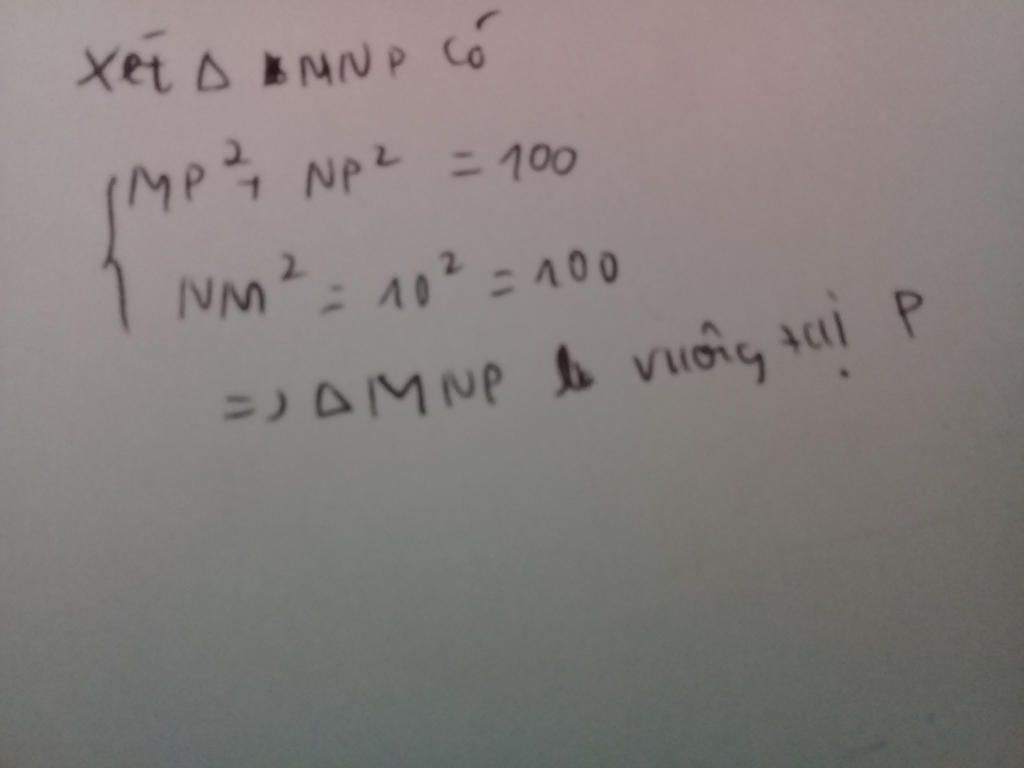 Xét Δ MNP Có
MP² + NP² = 100
NM² = 10² = 100
=> Δ MNP vuông tại P